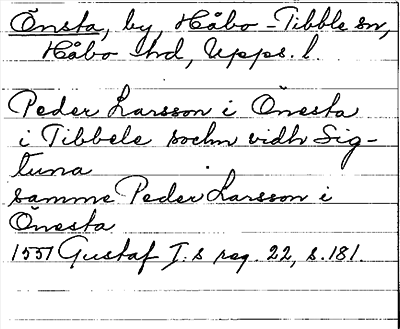 Önsta, by, Håbo-Tibble sn,
Håbo hd, Upps. l.
Peder Larsson i Önesta
i Tibbele sochn vidh Sig-
tuna
samme Peder Larsson i
Önesta
1551 Gustaf I.s reg. 22, s. 181.